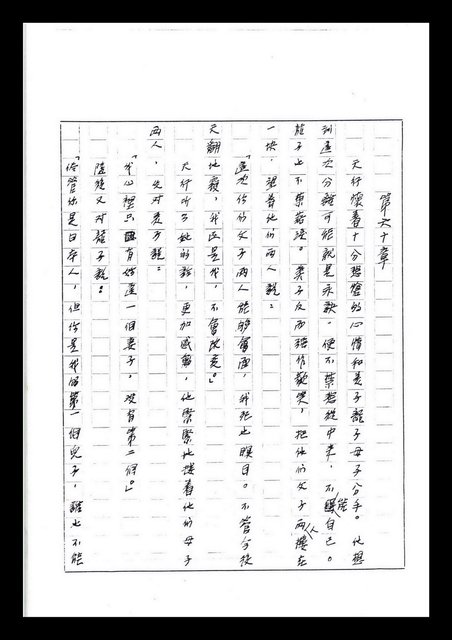 第六十章
天行懷着十分悽愴的心情和美子龍子母子分手。他想
到這次分離可能就是永訣，便不禁悲從中來，不能自已。
龍子也不禁落淚。美子反而強作歡笑，把他們父子兩人摟在
一塊，望着他們兩人說：
「這次你們父子兩人能夠會面，我死也瞑目。不管今後
天翻地覆，我還是我，不會改變。」
天行聽了她的話，更加感動，他緊緊地摟着他們母子
兩人，先對美子說：
「我心裡只有妳這一個妻子，沒有第二個。」
隨後又對龍子說：
「儘管你是日本人，但你是我的第一個兒子，誰也不能